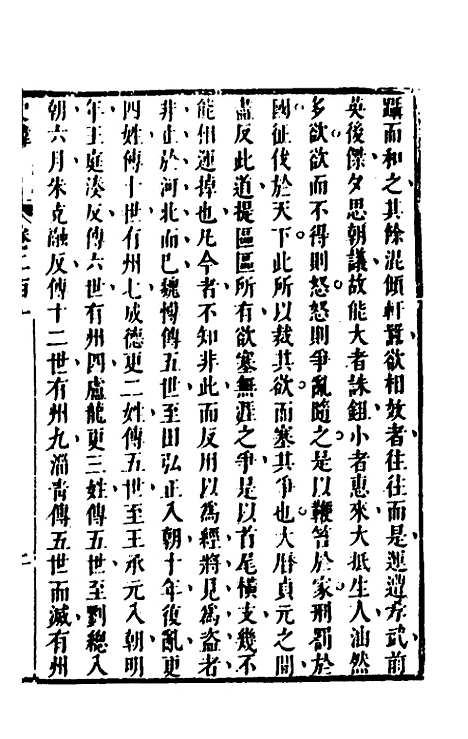 躡而和之其餘混澒軒囂欲相效者往往而是運遭孝武前
英後傑夕思朝議故能大者誅鉏小者惠來大抵生人油然
多欲欲而不得則怒怒則爭亂隨之是以鞭笞於家刑罰於
國征伐於天下此所以裁其欲而塞其爭也大曆貞元之間
盡反此道提區區所有欲塞無涯之爭是以首尾橫支幾不
能相運掉也凡今者不知非此而反用以為經將見為盜者
非止於河北而已魏博傳五世至田弘正入朝十年後亂更
四姓傳十世有州七成德更二姓傳五世至王承元入朝明
年王庭湊反傳六世有州四盧龍更三姓傳五世至劉總入
朝六月朱克融反傳十二世有州九淄青傳五世而滅有州
卷二百一